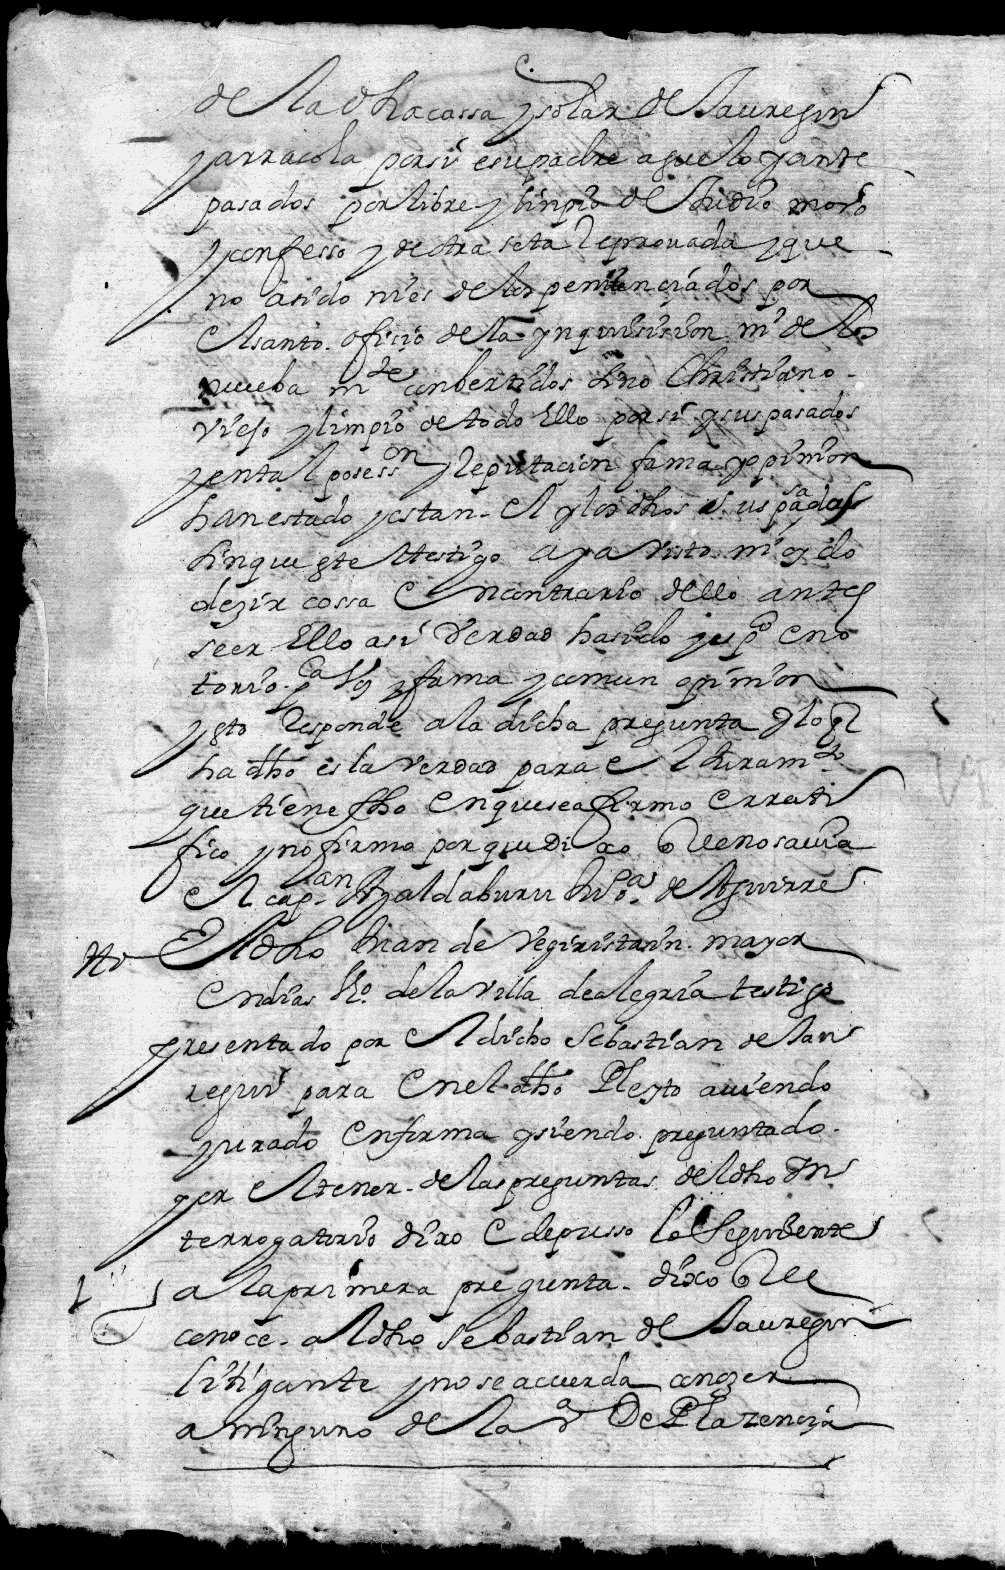 de la dha cassa y solar de Jauregui
y arracola por si e su padre aguelo y ante
pasados por libre y linpio de Judio moro
y confesso y de otra seta Reprovada y que
no a sido ni es de los penitenciados por
el santo oficio de la ynquisision ni de los
nueba mte conbertidos sino Christiano
viejo y limpio de todo Ello por si y sus pasados
y en tal posesson y Reputacion fama y opinion
han estado y estan el y los dhos sus pasados
sin que este testigo aya visto ni oydo
dezir cossa En contrario dello antes
seer Ello asi verdad ha sido y es pco e no
torio pca voz y fama y comun opinion
y esto Responde a la dicha pregunta y lo q
ha dho es la verdad para el Juramto
que tiene fho en que se afirmo e rrati
fico y no firmo porque dixo que no savia
el cap an Yzaldaburu de Aguirre
tto El dho Juan de Veguiristain mayor
en dias Vo de la villa de alegria testigo
presentado por el dicho Sebastian de Jau
regui para en el dho Pleyto aviendo
jurado en forma y siendo preguntado
por el tenor de las preguntas del dho Yn
terrogatorio dixo e depusso lo Seguiente
1 a la primera pregunta dixo que
conoce al dho Sebastian de Jauregui
litigante y no se acuerda conozer
a ninguno de la va De Plazencia